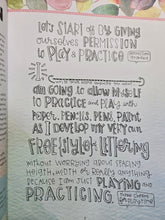 LET'S START OFF BY GIVING
OURSELVES PERMISSION
TO PLAY & PRACTICE
AM GOING TO ALLOW MYSELF
TO PRACTICE AND PLAY WITH
PAPER, PENCILS, PENS, PAINT,
AS I DEVELOP MY VERY OWN
FREE STYLE LETTERING
WITHOUT WORRYING ABOUT SPACING
HEIGHTH, WIDTH OR REALLY ANYTHING
BECAUSE I AM JUST PLAYING
AND
PRACTICING.